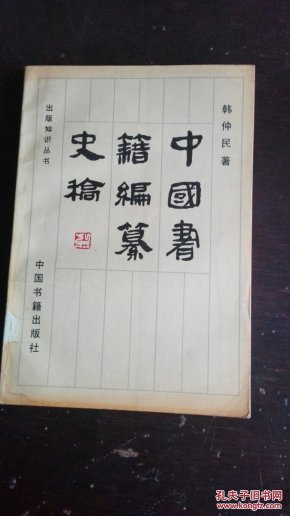 韩仲民著
中國書
籍編纂
史稿
出版知识丛书
中国书籍出版社
孔夫子旧书网
www.kongfz.com